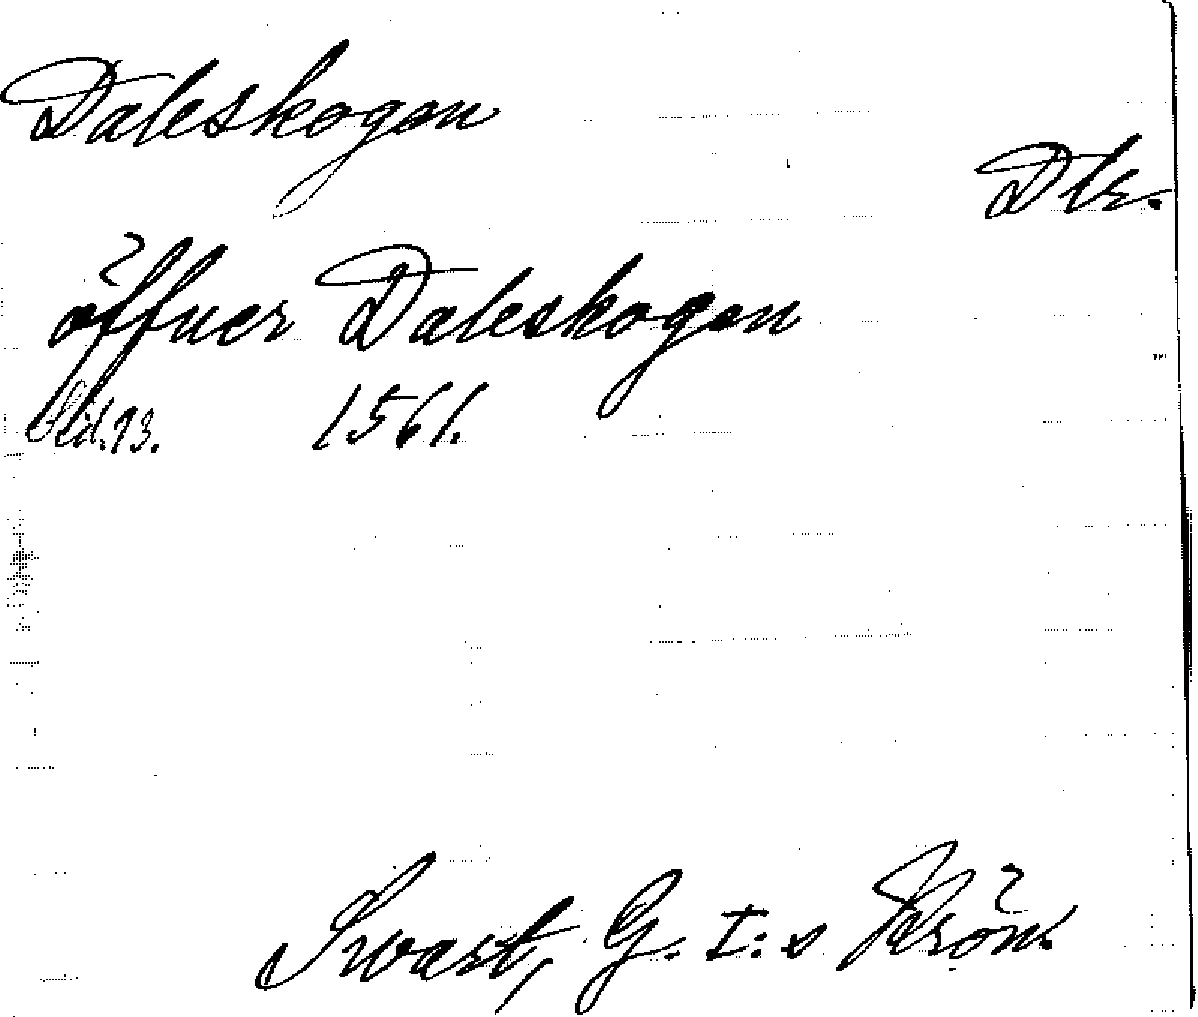 Daleskogen
Dlr.
öffuer Daleskogen
Sid. 93. 1561.
Swart, G. I:s Krön.